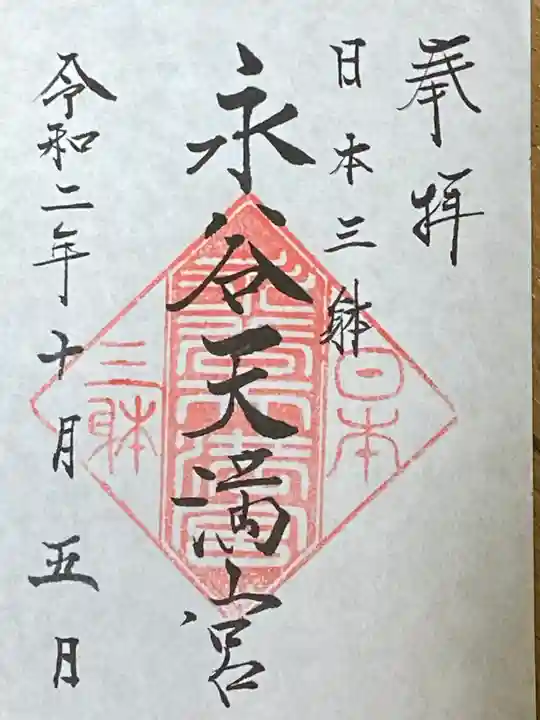 奉拝
日本三躰
永谷天満宮
令和二年十月五月
日本
三躰